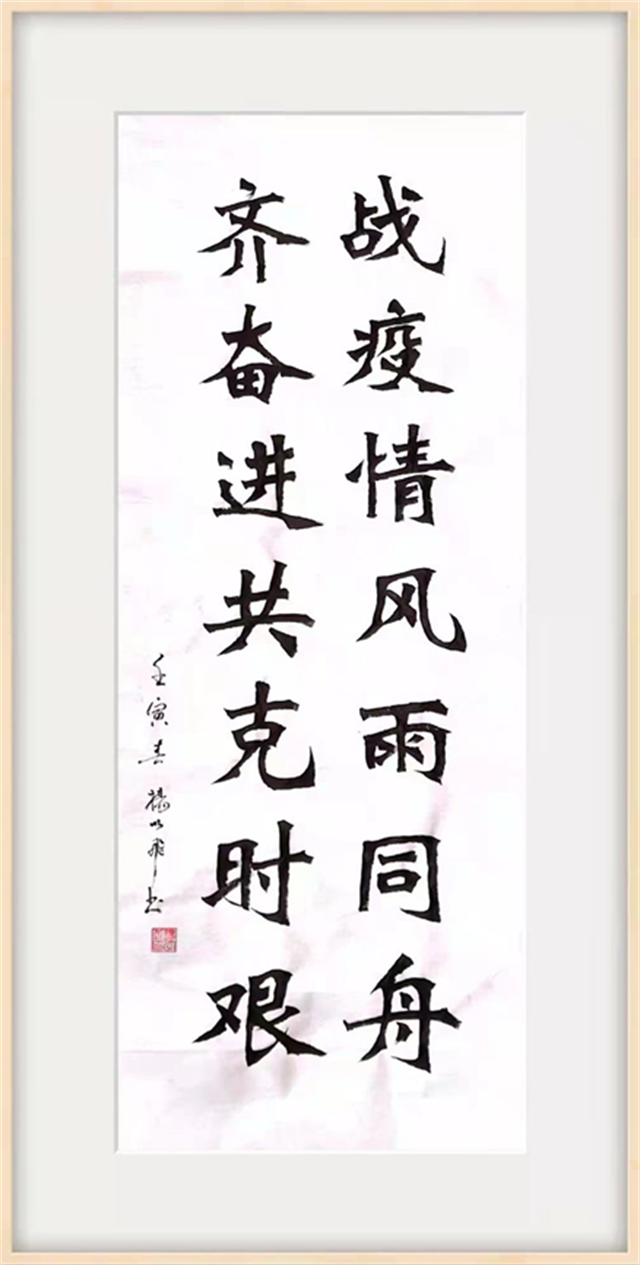 战疫情风雨同舟
齐奋进共克时艰
壬寅春杨
书